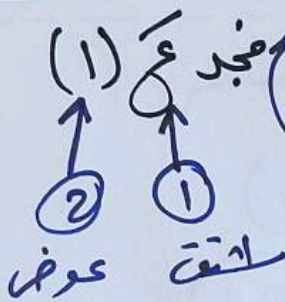 نجد عَ (١)
② ①
عوض اشتق